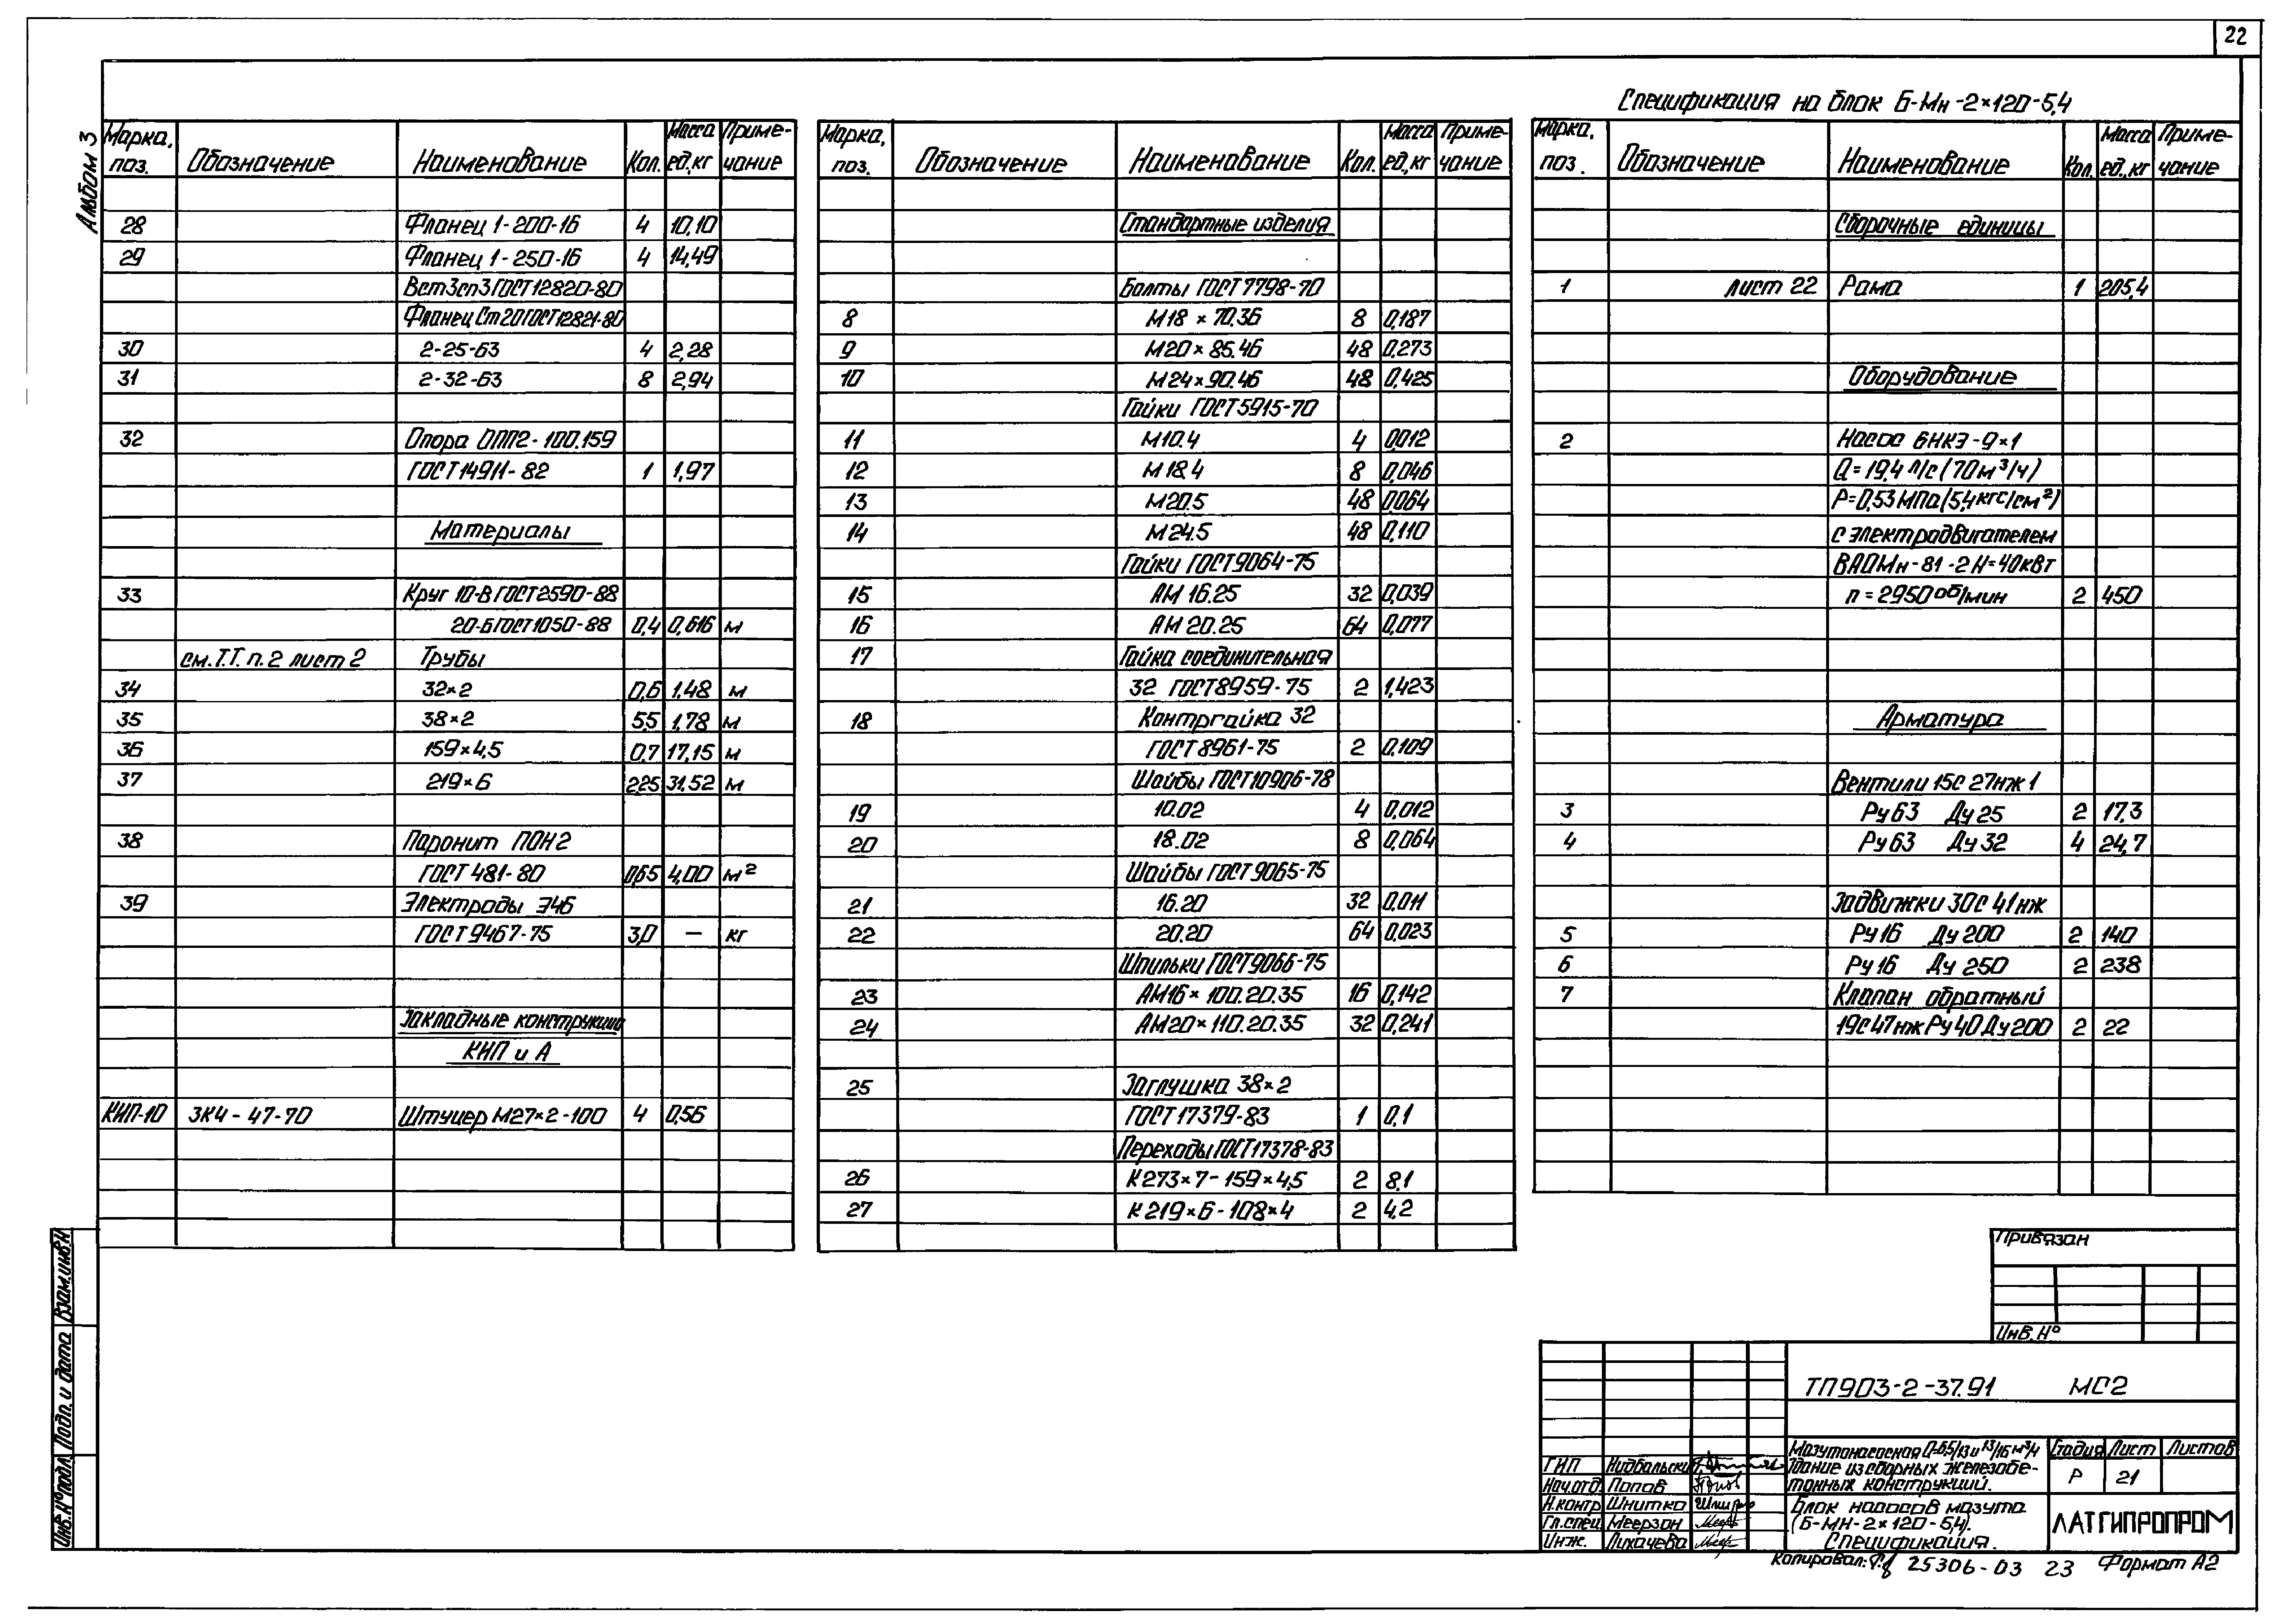 22
Альбом 3
Спецификация на блок Б-Мн-2×120-5,4
Марка, поз. Обозначение Наименование Кол. Масса ед,кг Приме-чание
28 Фланец 1-200-16 4 10,10
29 Фланец 1-250-16 4 14,49
Вст3сп3 ГОСТ12820-80
Фланец Ст20 ГОСТ12821-80
30 2-25-63 4 2,28
31 2-32-63 8 2,94
32 Опора ОПП2-100.159
ГОСТ14911-82 1 1,97
Материалы
33 Круг 10-В ГОСТ2590-88
20-Б ГОСТ1050-88 0,4 0,616 м
см. Т.Т. п.2 лист 2 Трубы
34 32×2 0,6 1,48 м
35 38×2 5,5 1,78 м
36 159×4,5 0,7 17,15 м
37 219×6 2,25 31,52 м
38 Паронит ПОН2
ГОСТ 481-80 0,65 4,00 м²
39 Электроды Э46
ГОСТ 9467-75 3,0 — кг
Закладные конструкции
КИП и А
КИП-10 ЗК4-47-70 Штуцер М27×2-100 4 0,56
Марка, поз. Обозначение Наименование Кол. Масса ед.,кг Приме-чание
Стандартные изделия
Болты ГОСТ 7798-70
8 М18×70.36 8 0,187
9 М20×85.46 48 0,273
10 М24×90.46 48 0,425
Гайки ГОСТ5915-70
11 М10.4 4 0,012
12 М18.4 8 0,046
13 М20.5 48 0,064
14 М24.5 48 0,110
Гайки ГОСТ9064-75
15 АМ 16.25 32 0,039
16 АМ 20.25 64 0,077
17 Гайка соединительная
32 ГОСТ8959-75 2 1,423
18 Контргайка 32
ГОСТ 8961-75 2 0,109
Шайбы ГОСТ10906-78
19 10.02 4 0,012
20 18.02 8 0,064
Шайбы ГОСТ 9065-75
21 16.20 32 0,011
22 20.20 64 0,023
Шпильки ГОСТ9066-75
23 АМ16×100.20.35 16 0,142
24 АМ20×110.20.35 32 0,241
25 Заглушка 38×2
ГОСТ 17379-83 1 0,1
Переходы ГОСТ17378-83
26 К273×7-159×4,5 2 8,1
27 К219×6-108×4 2 4,2
Марка, поз. Обозначение Наименование Кол. Масса ед.,кг Приме-чание
Сборочные единицы
1 лист 22 Рама 1 205,4
Оборудование
2 Насос 6НКЭ-9×1
Q=19,4 л/с (70м³/ч)
Р=0,53МПа(5,4кгс/см²)
с электродвигателем
ВАОМн-81-2 N=40кВт
n=2950 об/мин 2 450
Арматура
Вентили 15с 27нж 1
3 Ру63 Ду25 2 17,3
4 Ру63 Ду32 4 24,7
Задвижки 30с 41нж
5 Ру16 Ду200 2 140
6 Ру16 Ду250 2 238
7 Клапан обратный
19с47нж Ру40 Ду200 2 22
Привязан
Инв.№
ТП903-2-37.91 МС2
Здание из сборных железобе-
тонных конструкций.
Стадия Лист Листов
Р 21
Блок насосов мазута
(Б-МН-2×120-5,4).
Спецификация.
ЛАТГИПРОПРОМ
ГИП Нидбальски
Нач.отд. Попов
Н.контр. Шнитко
Гл.спец. Меерзон
Инж. Лихачева
Взам.инв.№
Подп. и дата
Инв.№подл.
Копировал: 25306-03 23 Формат А2